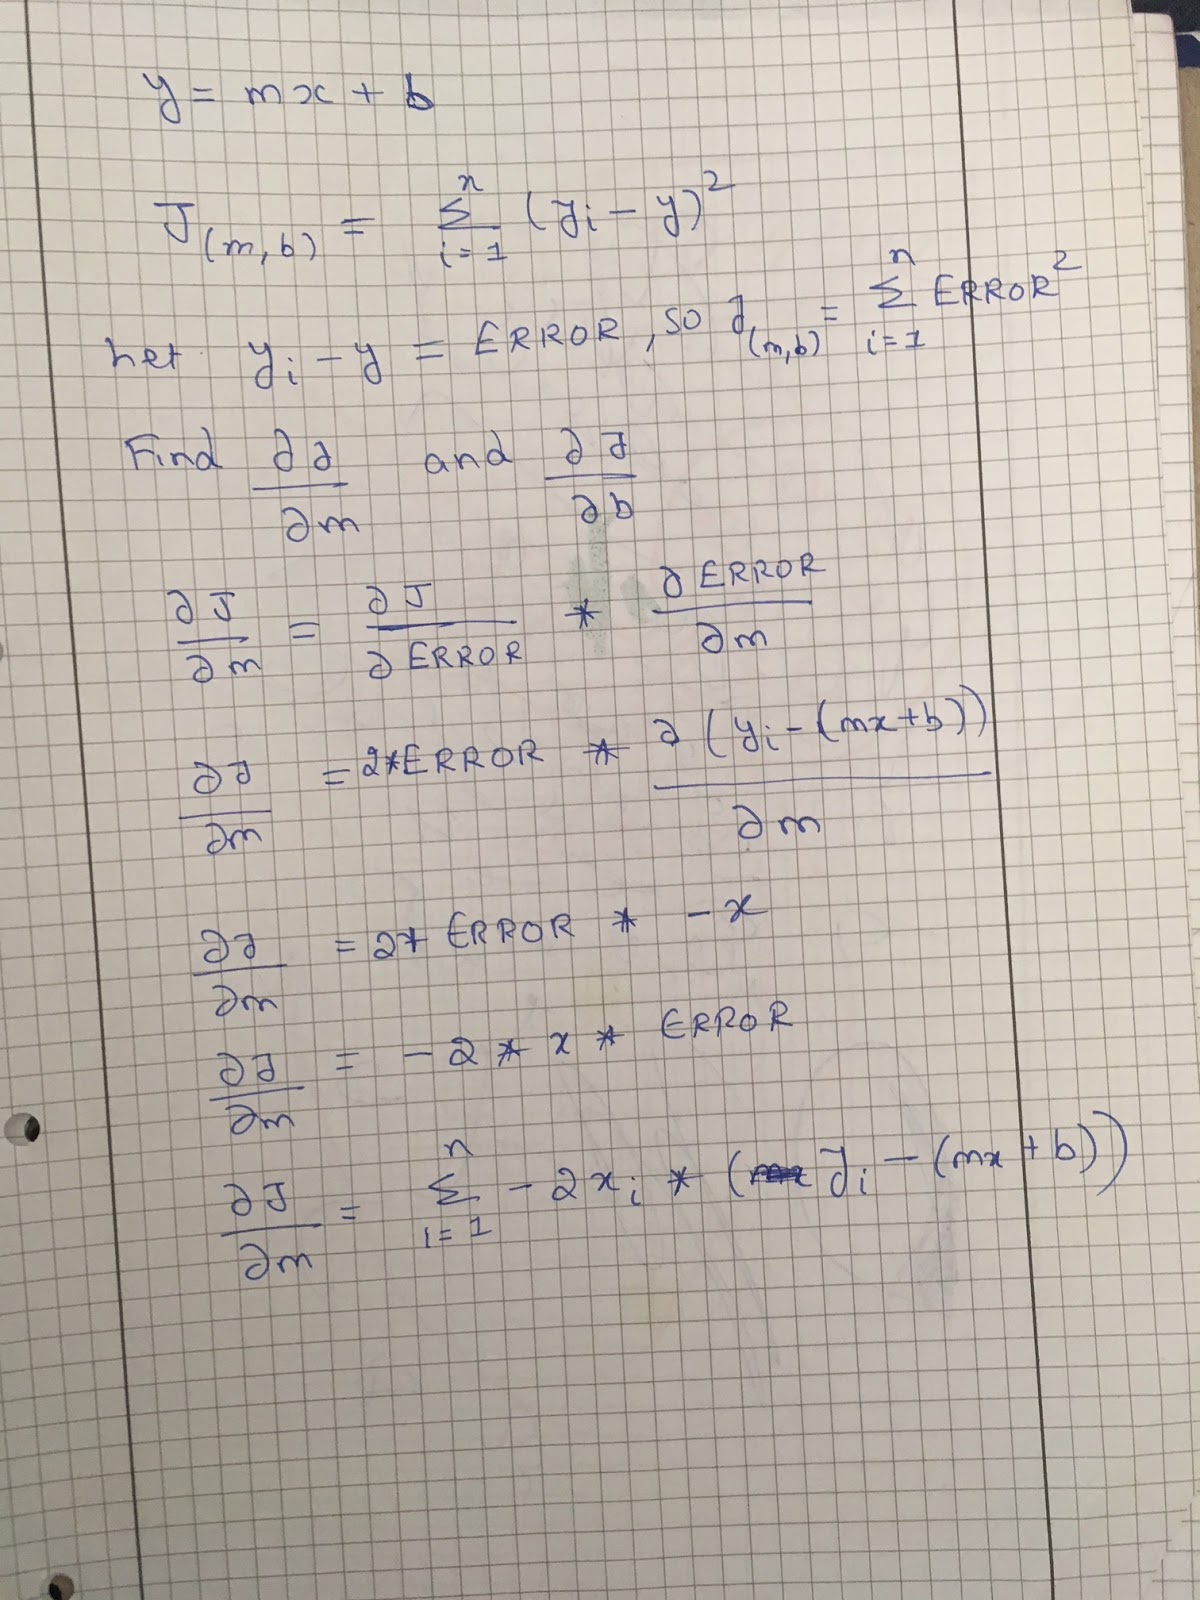 y = mx + b
J(m,b) = Σ i=1 n (yi - y)²
Let yi - y = ERROR, so J(m,b) = Σ i=1 n ERROR²
Find ∂J/∂m and ∂J/∂b
∂J/∂m = ∂J/∂ERROR * ∂ERROR/∂m
∂J/∂m = 2*ERROR * ∂(yi-(mx+b))/∂m
∂J/∂m = 2* ERROR * -x
∂J/∂m = -2 * x * ERROR
∂J/∂m = Σ i=1 n -2xi * (yi - (mx + b))